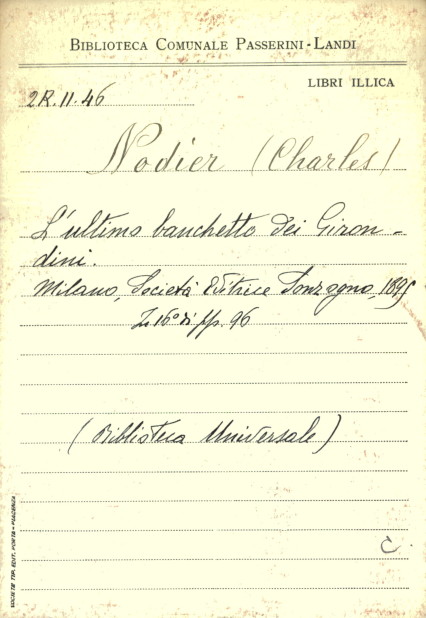 BIBLIOTECA COMUNALE PASSERINI-LANDI
LIBRI ILLICA
2R.11.46
Nodier (Charles)
L'ultimo banchetto dei Giron-
dini.
Milano, Società Editrice Sonzogno, 1895
In 16° di pp. 96
(Biblioteca Universale)
C.
SOCIETÀ TIP. EDIT. PORTA - PIACENZA